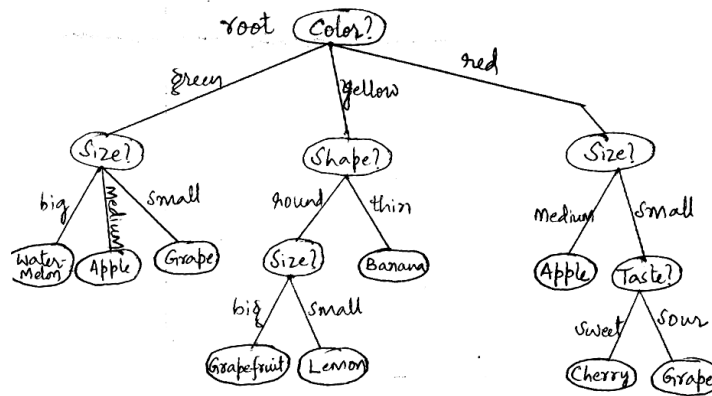 root Color?
green
yellow
red
Size?
Shape?
Size?
big
Medium
small
round
thin
Medium
small
Water-
Melon
Apple
Grape
Size?
Banana
Apple
Taste?
big
small
sweet
sour
Grapefruit
Lemon
Cherry
Grape